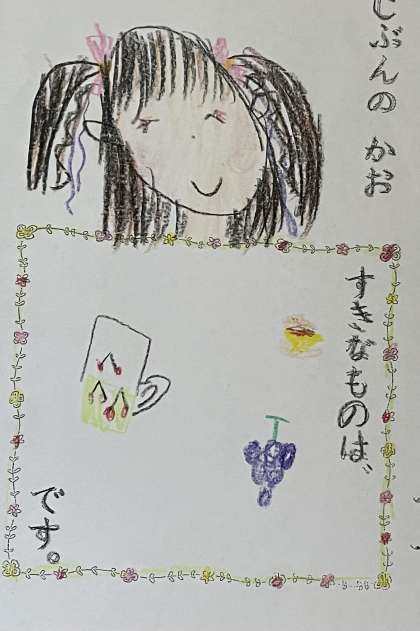 じぶんの かお
すきなものは、
です。